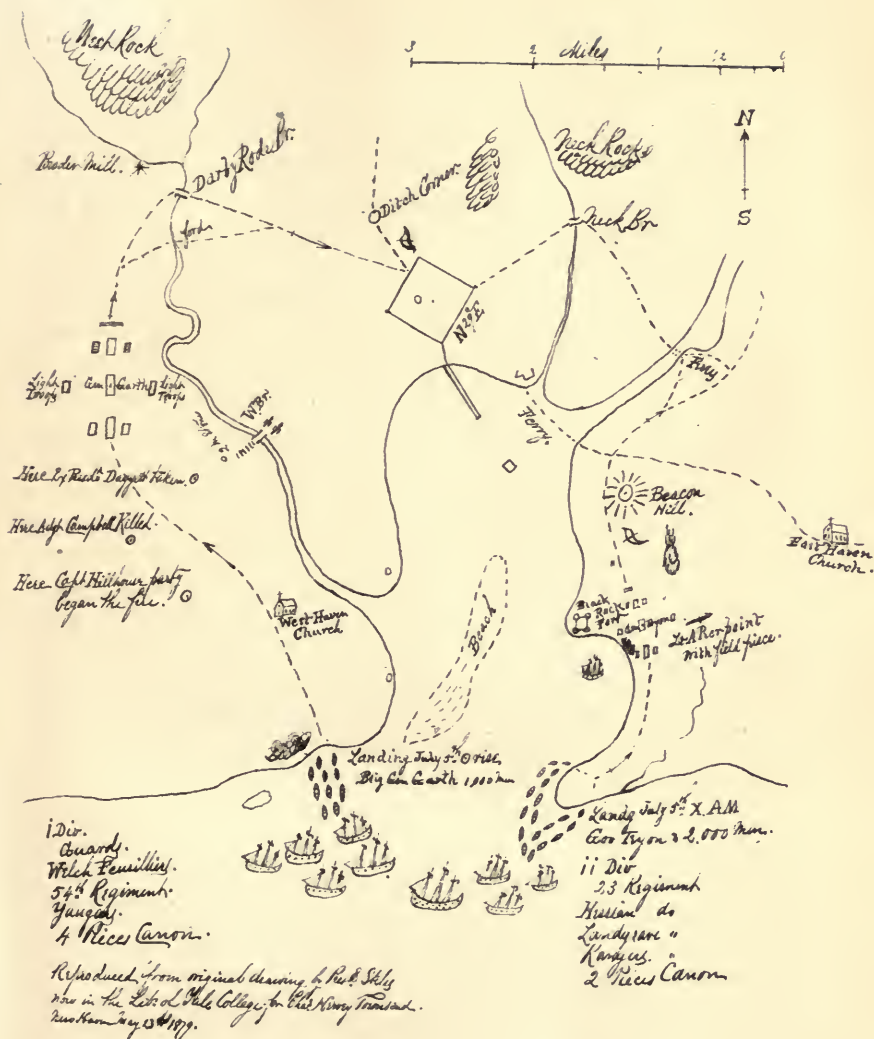 Neck Rock
3 2 Miles 1 1/2 0
Neck Rock
N
S
Powder Mill.
Darby Road Br.
Ditch Corner.
Neck Br
ford
N 29° E
Light
Troops
Gen Garth
Light
Troops
W. Br.
Ferry
Ferry.
Here Ex Presdt Daggett taken.
Here Adjt Campbell Killed.
Here Capt Hillhouse party
began the fire.
Beacon
Hill.
East Haven
Church.
West Haven
Church
Beach
Black
Rock
Fort
Gen Tryon
Lt. A Perpoint
with field piece.
Landing July 5th rise
Brig Gen Garth 1,000 men
Landg July 5th X. AM
Gov Tryon & 2,000 Men.
i Div.
Guards.
Welch Feusilliers.
54th Regiment.
Yaugers.
4 Pieces Canon.
ii Div
23 Regiment
Hessian do
Landgrave "
Kings "
2 Pieces Canon
Reproduced from original drawing by Prest Stiles
now in the Lib. of Yale College, for Chas Hervey Townsend.
New Haven May 13th 1879.